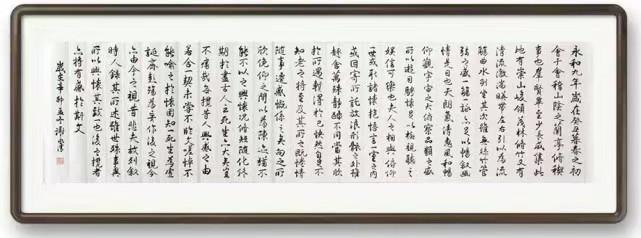 永和九年歲在癸丑暮春之初
會于會稽山陰之蘭亭脩禊
事也羣賢畢至少長咸集此
地有崇山峻領茂林脩竹又有
清流激湍暎帶左右引以為流
觴曲水列坐其次雖無絲竹管
弦之盛一觴一詠亦足以暢敘幽
情是日也天朗氣清惠風和暢
仰觀宇宙之大俯察品類之盛
所以遊目騁懷足以極視聽之
娛信可樂也夫人之相與俯仰
一世或取諸懷抱悟言一室之內
或因寄所託放浪形骸之外雖
趣舍萬殊靜躁不同當其欣
於所遇暫得於己快然自足不
知老之將至及其所之既惓情
隨事遷感慨係之矣向之所
欣俛仰之閒以為陳迹猶不
能不以之興懷況脩短隨化終
期於盡古人云死生亦大矣豈
不痛哉每攬昔人興感之由
若合一契未嘗不臨文嗟悼不
能喻之於懷固知一死生為虛
誕齊彭殤為妄作後之視今
亦由今之視昔悲夫故列敘
時人錄其所述雖世殊事異
所以興懷其致一也後之攬者
亦將有感於斯文
歲在辛卯